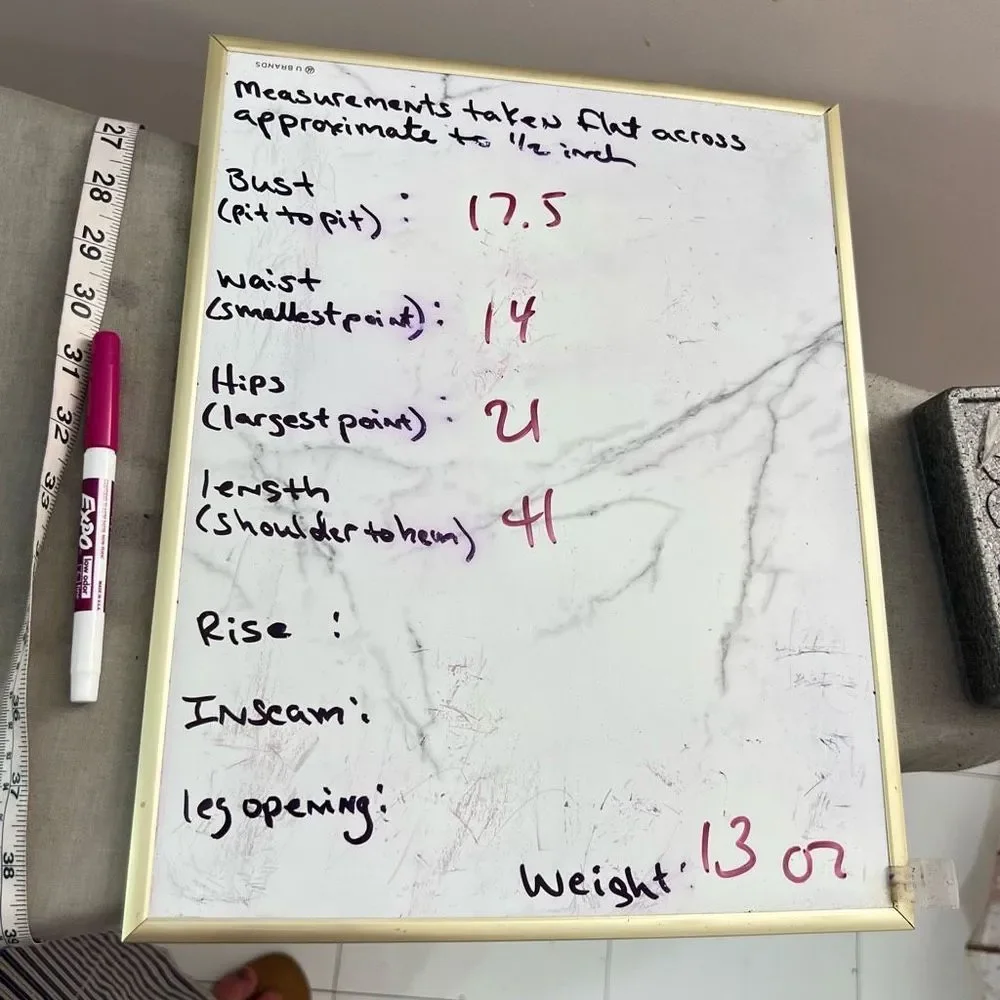 U BRANDS
Measurements taken flat across
approximate to 1/2 inch
Bust
(pit to pit) : 17.5
waist
(smallest point): 14
Hips
(largest point) : 21
length
(shoulder to hem) 41
Rise :
Inseam:
leg opening:
Weight: 13 oz
27
28
29
30
31
32
33
36
37
38
39
EXPO
low odor